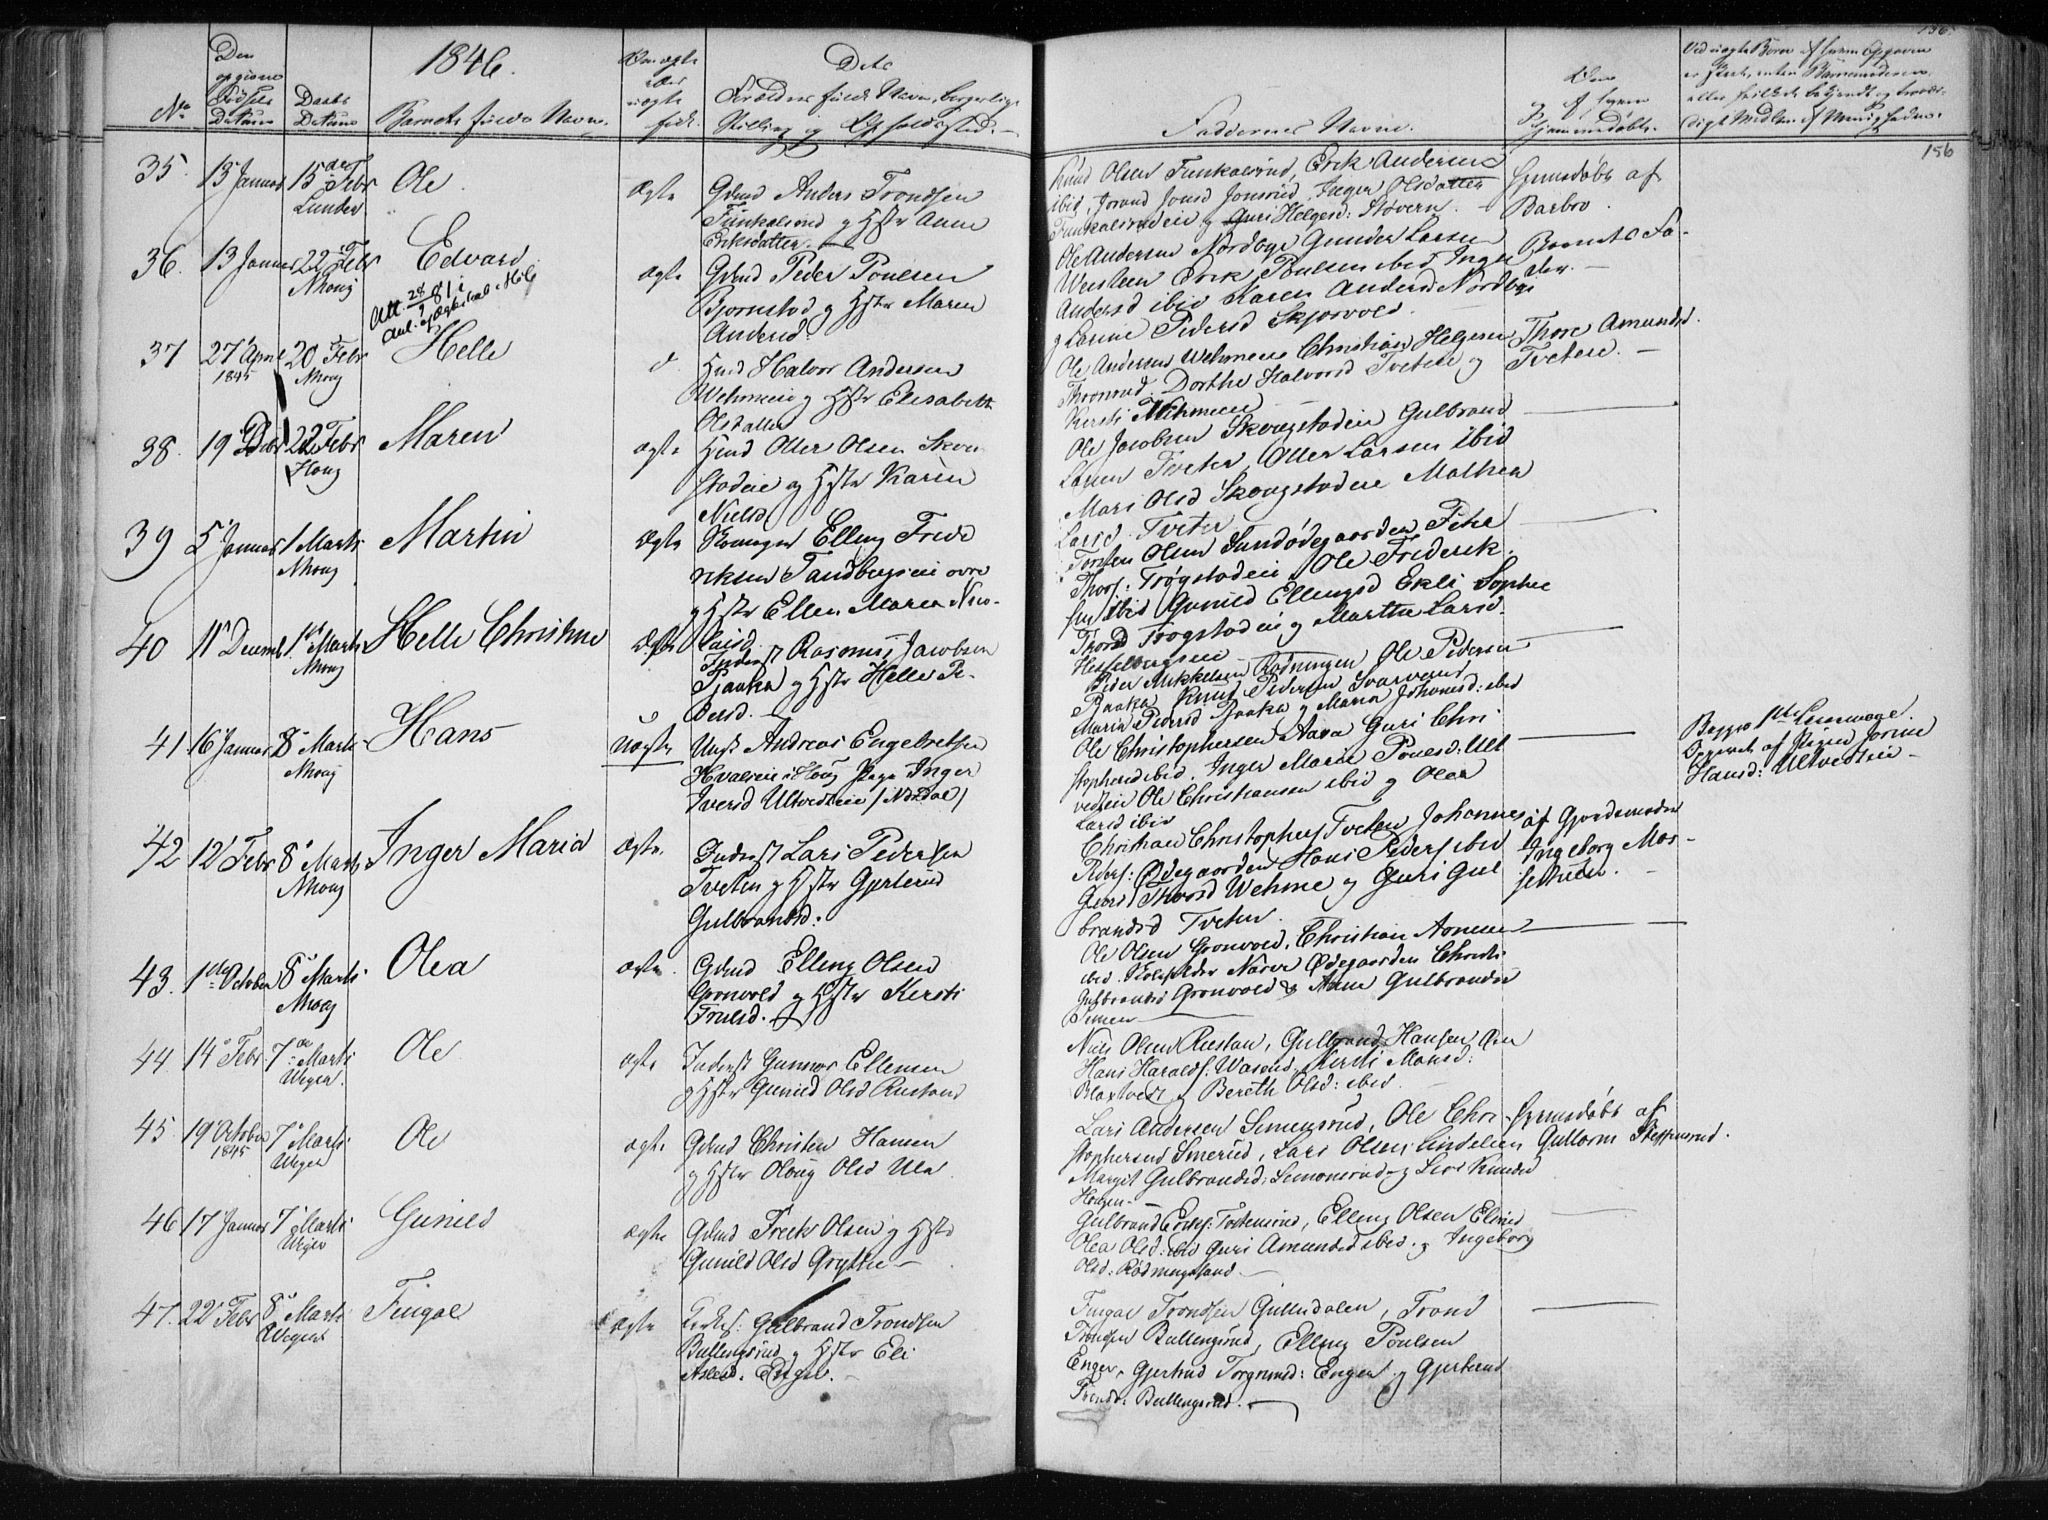 1846.
156
Den opgivne Fødsels Datum
Daabs Datum
No
Barnets fulde Navn.
Om ægte eller uægte født.
Dets Forældres fulde Navn, borgerlige Stilling og Opholdssted.
Faddernes Navne.
og af hvem Hjemmedøbt.
Ved uægte Børn af hvem Opgaven er skeet, enten Barnemoderen
156
35. 13 Januar 15de Febr Lunder
Ole
Ægte
Gdmd Anders Trondsen
Funkelsrud og Hstr Anne
Eriksdatter.
Knud Olsen Funkelsrud, Erik Andersen
ibid, Jorand Jonsd Jonsrud, Inger Olsdatter
Funkelsrudeie og Guri Helgesd: Støvern.
Hjemmedøbt af
Barbro.
36. 13 Januar 22 Febr Nhoug
Edvard
Att. 28/1 81 i
Ægte
Gdmd Peder Poulsen
Bjørnstad og Hstr Maren
Andersd.
Ole Andersen Nordbye Gunder Larsen
Weisteen Erik Poulsen ibid Inger
Andersd ibid Karen Andersd Nordbye
og Larine Pedersd Skjørvold.
Barnets Fa-
der.
37 27 April 1845 20 Febr Nhoug
Helle
d
Hmd Halvor Andersen
Wehmeie og Hstr Elisabeth
Olsdatter
Ole Andersen Wehmeie Christian Helgesen
Thoenrud, Dorthe Halvorsd Tveten og
Kersti Wehmeie
Thore Amundsd.
Tvetene.
38. 19 Dcbr 22 Febr Houg
Maren
ægte
Hmd Otter Olsen Skou
stadeie og Hstr Karen
Nielsd.
Ole Jacobsen Skougstadeie Gulbrand
Larsen Tveter, Otter Larsen ibid
Mari Olsd Skougstadeie Mathea
Larsd Tveter.
39 5 Januar 1 Marts Nhoug
Martin
Ægte
Elling Frede
riksen Tandbergseie øvre
og Hstr Ellen Maria Nico-
laisd.
Torsten Olsen Sundødegaarden Peter
Thors: Trøgstadeie, Ole Frederik
sen ibid Gunild Ellingsd Ekli Sophie
Thorsd Trøgstadeie og Marthe Larsd
Hesselbergseie
40 11 Decemb. 1st Marts Nhoug
Helle Christine
Ægte
Inderst Rasmus Jacobsen
Pjaaka og Hstr Helle Pe-
dersd.
Peder Mikkelsen Rødningen Ole Pedersen
Pjaaka Knud Pedersen Svarverud
Maria Pedersd Pjaaka og Maria Johannesd: ibid
41 16 Januar 8 Marts Nhoug
Hans
Uægte
Unst Andreas Engebretsen
Hvalseie i Houg Pige Inger
Iversd Ultvedteie / Nordal /
Ole Christophersen Aasa Guri Chri
stophersd ibid. Inger Marie Poulsd: Ult
vedteie Ole Christiansen ibid og Olea
Larsd ibid
Begges 1ste Leiermaal.
Opgivet af Pigen Jorine
Hansd: Ultvedteie
42 12 Febr 8 Marts Nhoug
Inger Maria
Ægte.
Inderst Lars Pedersen
Tveten og Hstr Gjertrud
Gulbrandsd:
Christian Christophers Tveten Johannes
Peders: Ødegaarden Hans Peders ibid
Guri Thorsd Wehme og Guri Gul
brandsd Tveten.
af Gjordemoder
Ingeborg Mos-
serhuen.
43. 1de October 8 Marts Nhoug
Olea
ægte.
Gdmd Elling Olsen
Grønvold og Hstr Kersti
Truelsd.
Ole Olsen Grønvold, Christian Arnesen
ibid. Narve Ødegaarden Christi
Gulbrandsd Grønvold og Anne Gulbrandsd
Semen
44 14 Febr. 7de Marts Weger.
Ole
ægte
Inderst Gunnar Ellensen
og Hstr Gunild Olsd Rustand
Niels Olsen Rustan, Gulbrand Hansen
Hans Haralds: Wasend, Kersti Monsd:
Blaxtvedt og Bereth Olsd: ibid.
45 19 October 1845 7 Marts Weger
Ole
ægte
Gdmd Christen Hansen
og Hstr Oloug Olsd Ula
Lars Andersen Simensrud, Ole Chri-
stophersen Smerud, Lars Olsen Lindelien
Margit Gulbrandsd: Simonsrud og Siri Knudsd
Hougen
Hjemmedøbt af
Guttorm Steffensrud.
46 17 Januar 7 Marts Weger
Gunild
ægte
Gdmd Frerk Olsen og Hstr
Gunild Olsd Grytte
Gulbrand Eriks: Tostensrud, Elling Olsen Elsrud
Olea Olsd: ibid Guri Amundsd ibid. og Ingeborg
Olsd: Rødningsand.
47. 22 Febr 8 Marts Weger
Fingal
ægte
Gulbrand Trondsen
Bullengsrud og Hstr Eli
Aslesd. Enger.
Fingal Trondsen Gullerdalen, Trond
Trondsen Bullengsrud, Elling Poulsen
Enger, Gjertrud Torgrimsd: Enger og Gjertrud
Trondsd. Bullengsrud.